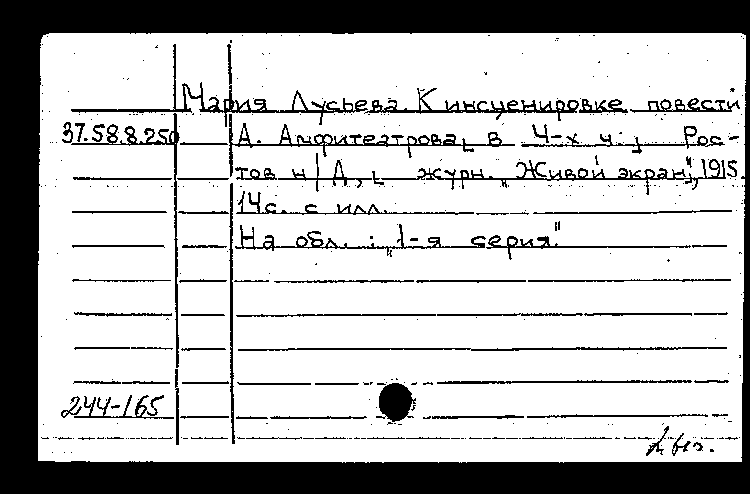 Мария Лусьева. К инсценировке повести
37.58.8.250 А. Амфитеатрова[ в 4-х ч.] Рос-
тов н/Д, [ журн. „Живой экран"], 1915.
14с. с илл.
На обл.: „1-я серия"
244-165